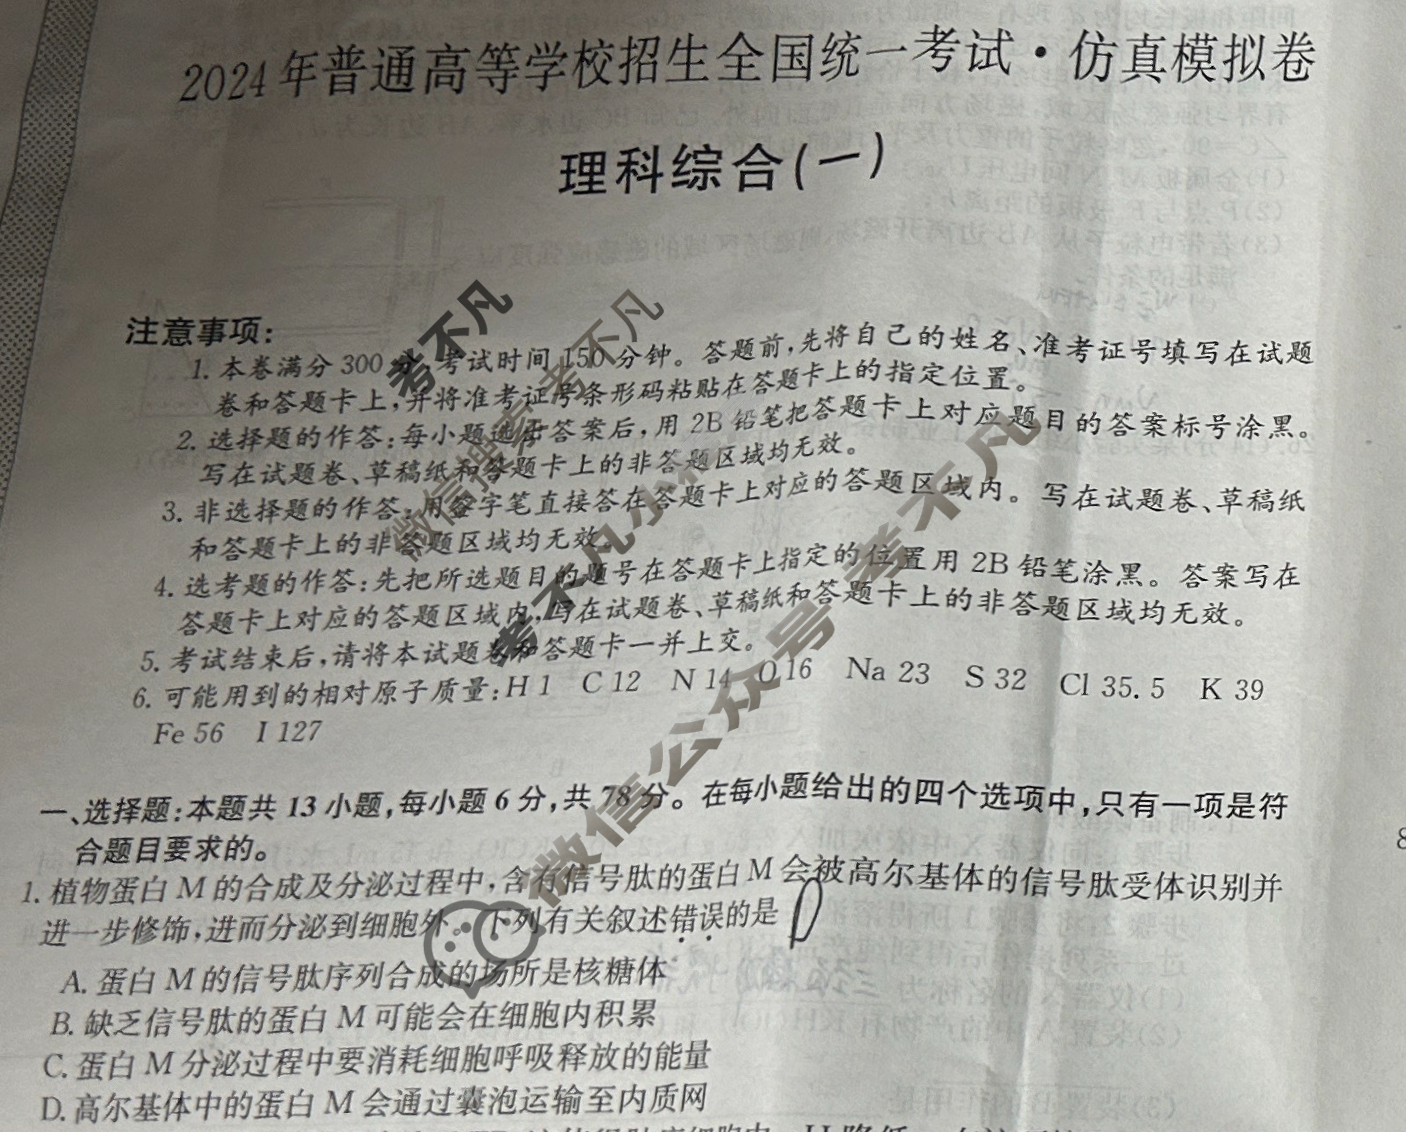 2024年普通高等学校招生全国统一考试·仿真模拟卷
理科综合(一)
注意事项:
1. 本卷满分300分,考试时间150分钟。答题前,先将自己的姓名、准考证号填写在试题
卷和答题卡上,并将准考证号条形码粘贴在答题卡上的指定位置。
2. 选择题的作答:每小题选出答案后,用2B铅笔把答题卡上对应题目的答案标号涂黑。
写在试题卷、草稿纸和答题卡上的非答题区域均无效。
3. 非选择题的作答:用签字笔直接答在答题卡上对应的答题区域内。写在试题卷、草稿纸
和答题卡上的非答题区域均无效。
4. 选考题的作答:先把所选题目的题号在答题卡上指定的位置用2B铅笔涂黑。答案写在
答题卡上对应的答题区域内,写在试题卷、草稿纸和答题卡上的非答题区域均无效。
5. 考试结束后,请将本试题卷和答题卡一并上交。
6. 可能用到的相对原子质量:H 1 C 12 N 14 O 16 Na 23 S 32 Cl 35.5 K 39
Fe 56 I 127
一、选择题:本题共13小题,每小题6分,共78分。在每小题给出的四个选项中,只有一项是符
合题目要求的。
1. 植物蛋白M的合成及分泌过程中,含有信号肽的蛋白M会被高尔基体的信号肽受体识别并
进一步修饰,进而分泌到细胞外。下列有关叙述错误的是 D
A. 蛋白M的信号肽序列合成的场所是核糖体
B. 缺乏信号肽的蛋白M可能会在细胞内积累
C. 蛋白M分泌过程中要消耗细胞呼吸释放的能量
D. 高尔基体中的蛋白M会通过囊泡运输至内质网
考不凡
微信搜索 考不凡
考不凡小
微信公众号 考不凡